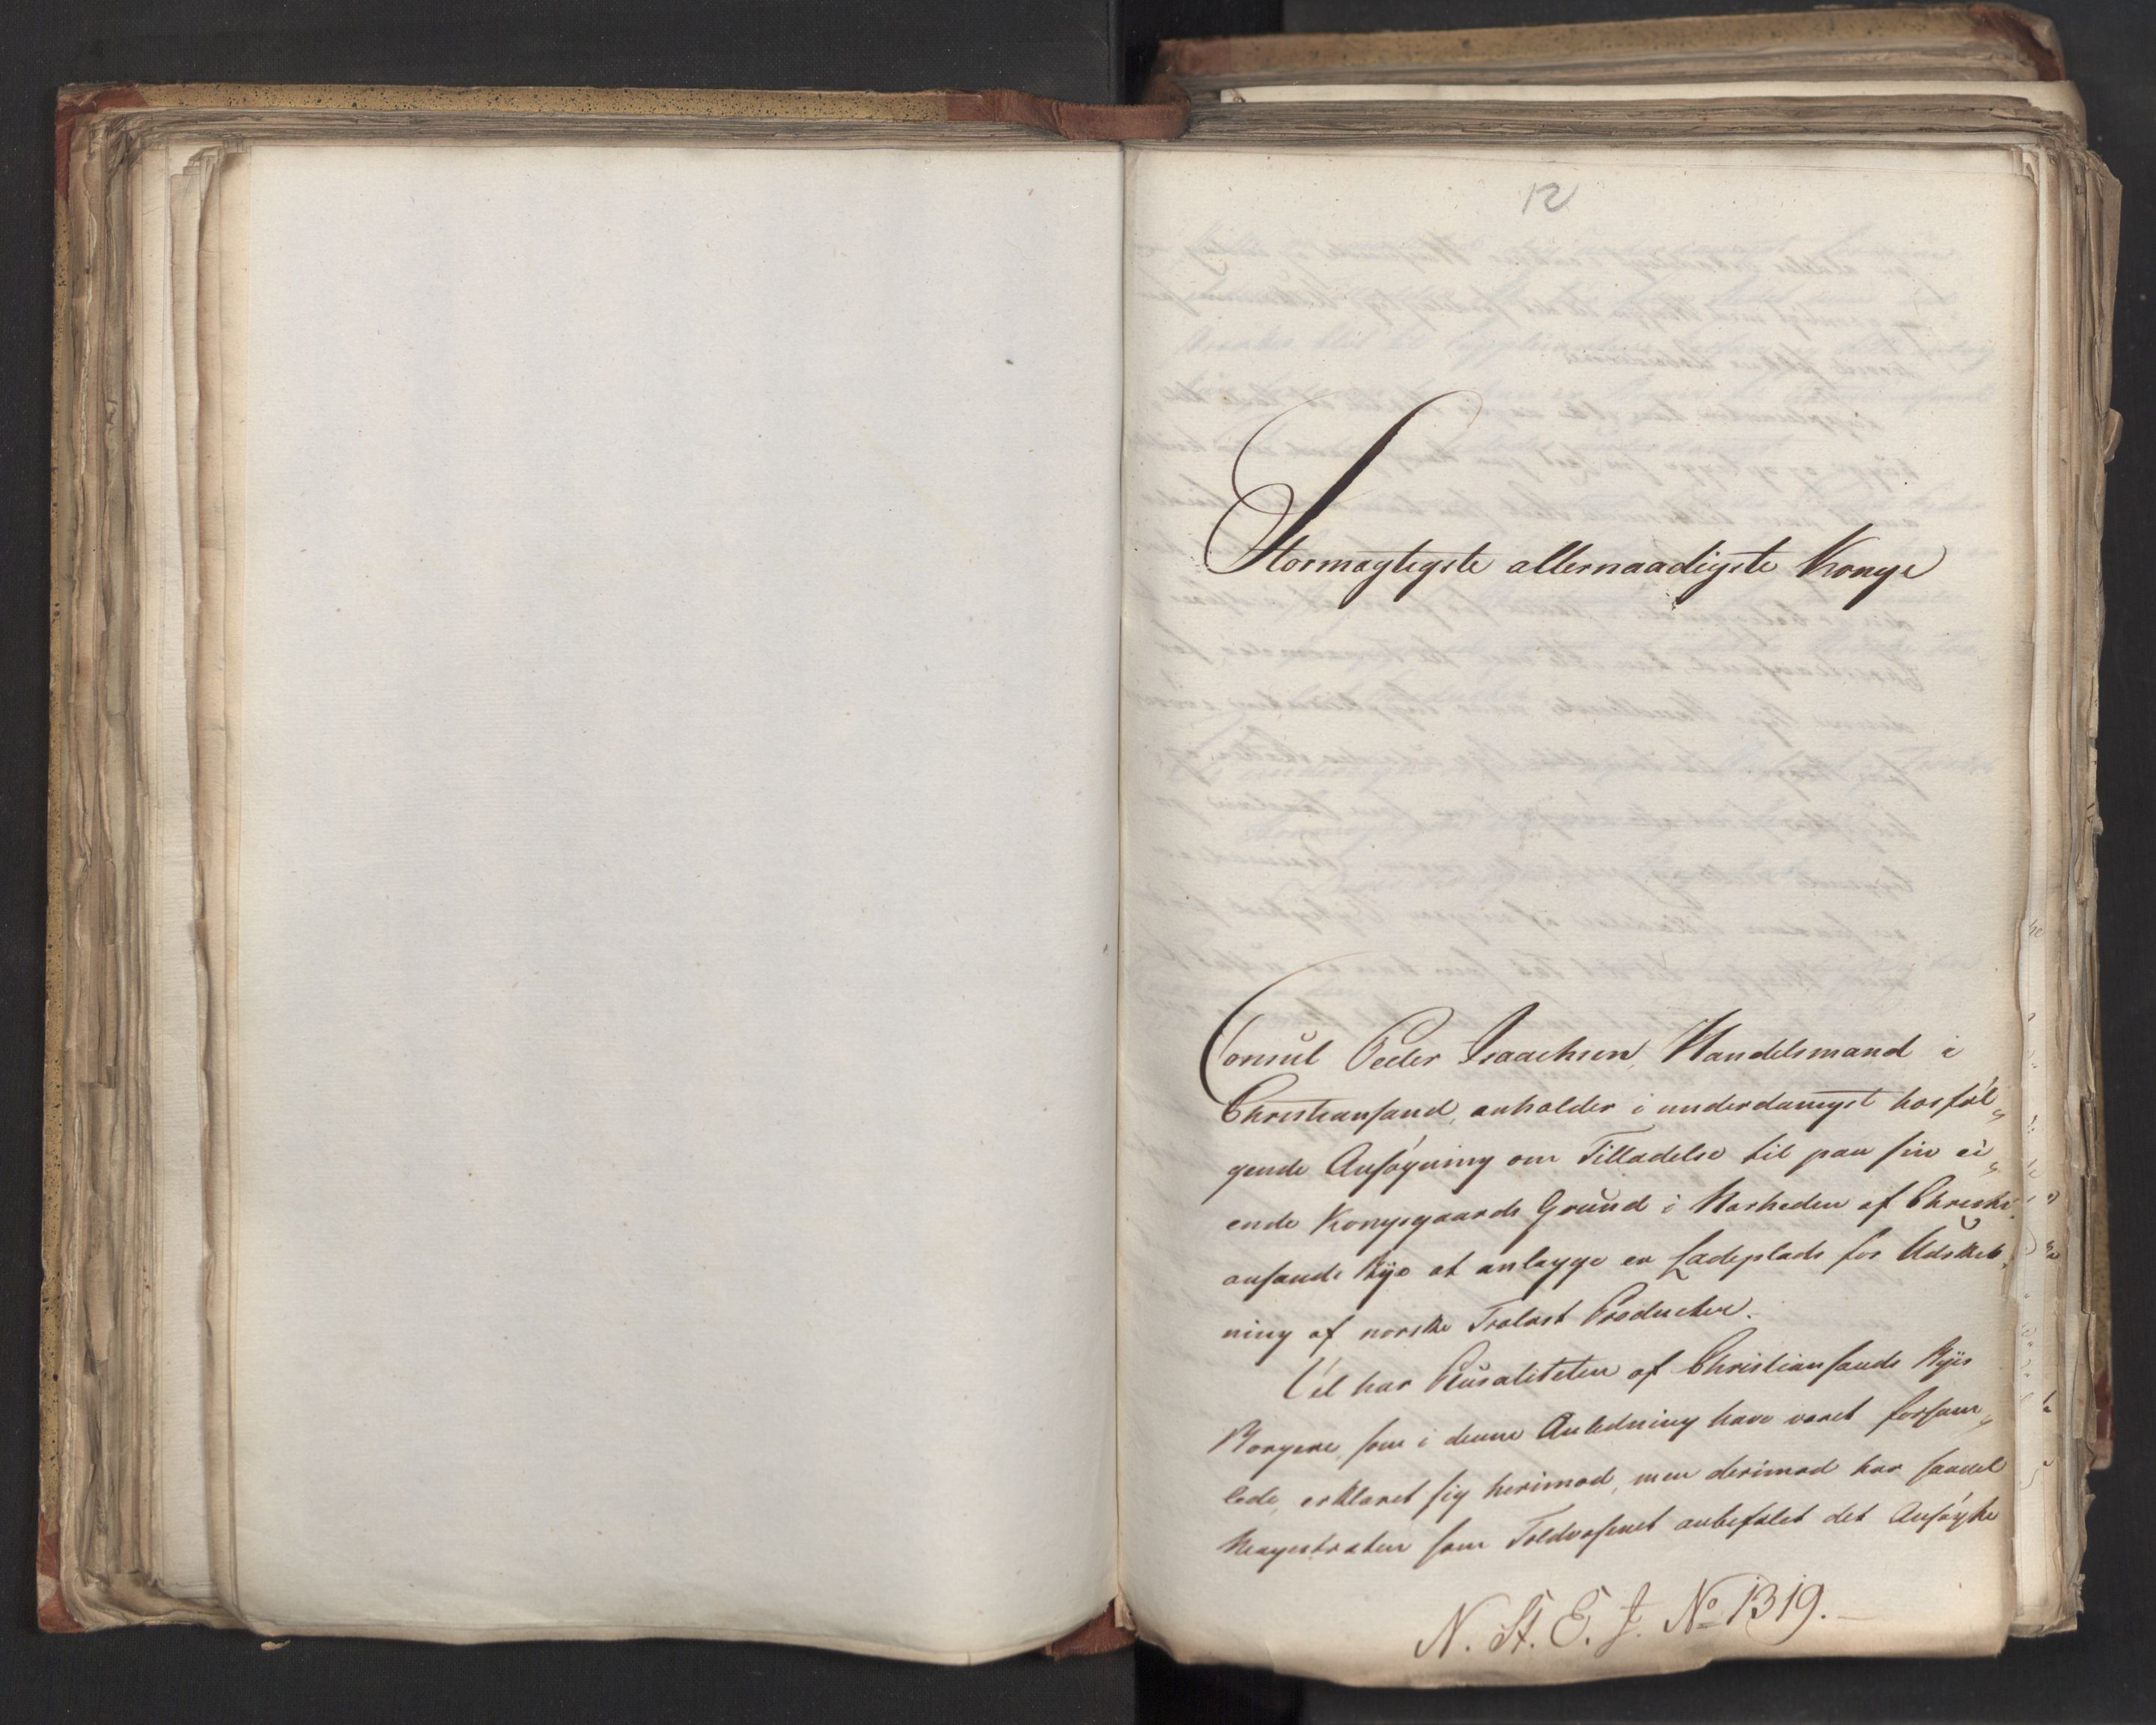 12
Stormægtigste allernaadigste Konge
Consul Peder Isaachsen, Handelsmand i
Christiansand, anholder i underdanigst hosføl„
gende Ansøgning om Tilladelse til paa sin ei„
ende Kongsgaards Grund i Nærheden af Christi„
ansands Bye at anlægge en Ladeplads for Udskib„
ning af norske Trælast Producter.
Vel har Pluraliteten af Christiansands Byes
Borgere, som i denne Anledning have været forsam„
lede, erklæret sig herimod, men derimod har saavel
Magistraten som Toldvæsenet anbefalet det Ansøgte
N. St. E. J. No 1319.